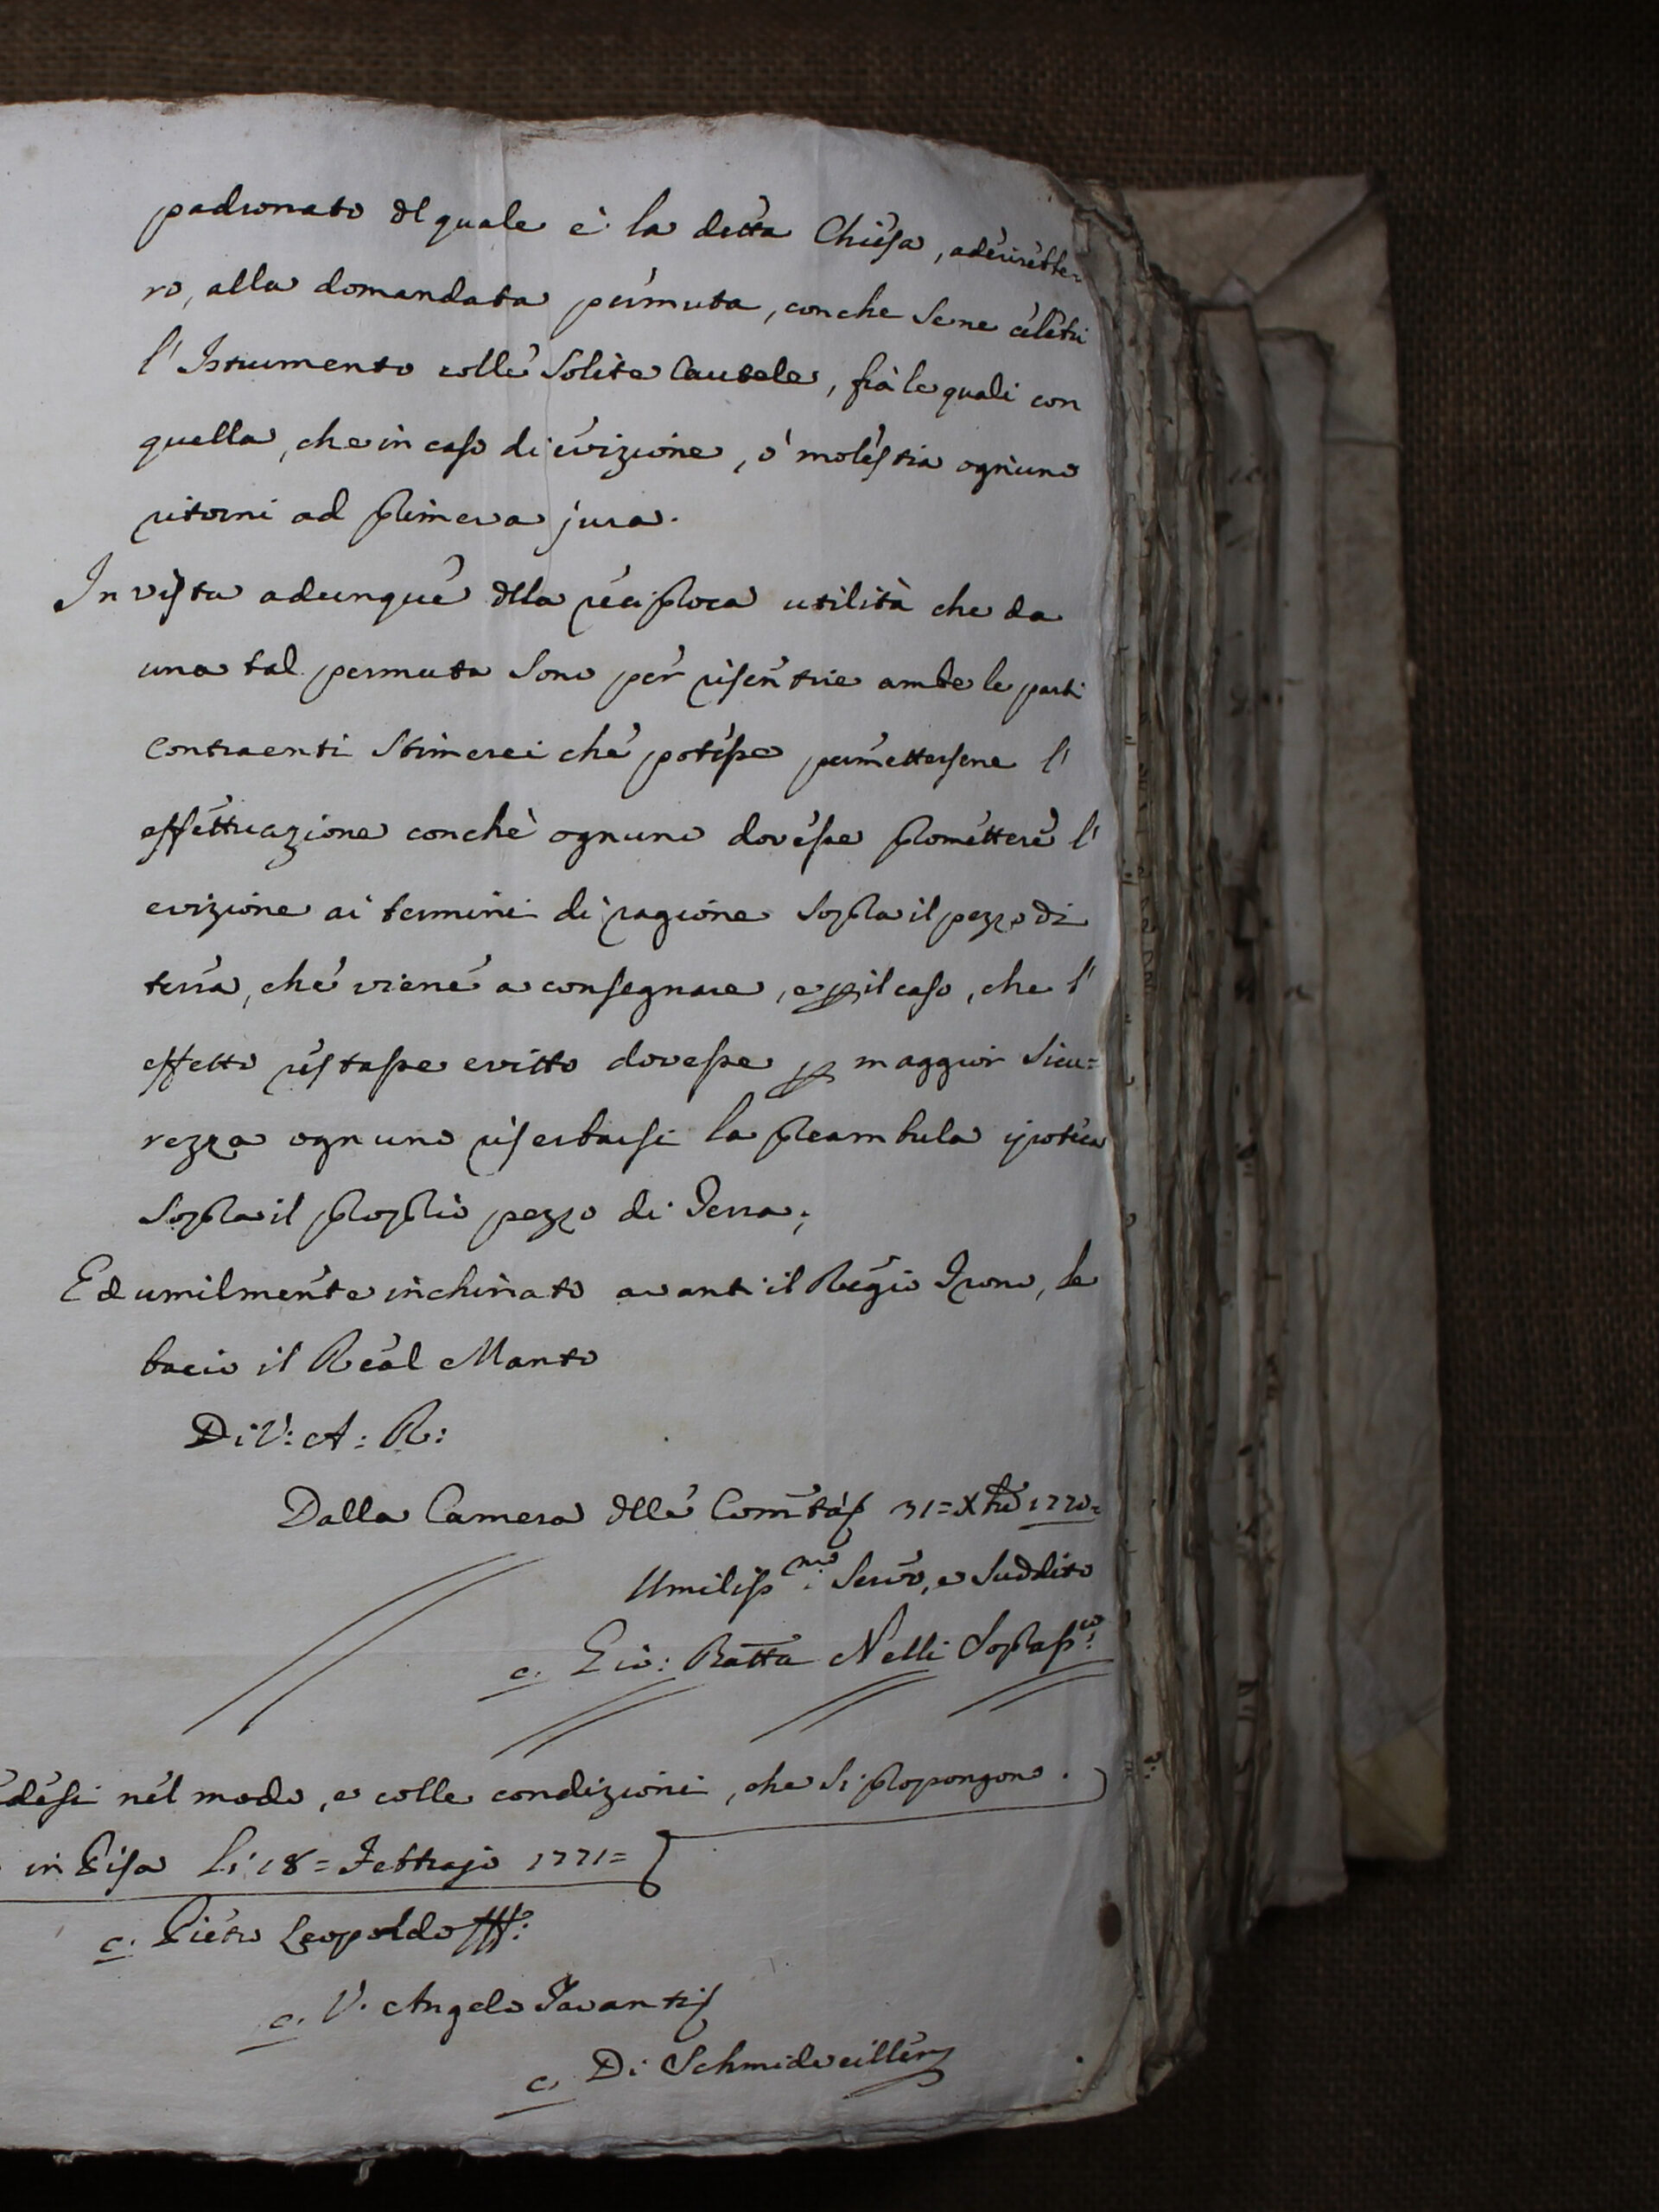 padronato del quale è la detta Chiesa, aderirebbe-
ro, alla domandata permuta, con che se ne celebri
l'Istrumento colle solite Cautele, frà le quali con
quella, che in caso di evizione, ò molestia ognuno
ritorni ad primera jura.
In vista adunque della reciproca utilità che da
una tal permuta sono per risentire ambe le parti
contraenti stimerei che potesse permettersene l'
effettuazione con chè ognuno dovesse promettere l'
evizione ai termini di ragione sopra il pezzo di
terra, che viene a consegnare, e per il caso, che l'
effetto restasse evitto dovesse per maggior sicu=
rezza ognuno riserbarsi la preambula ipoteca
sopra il proprio pezzo di Terra;
Ed umilmente inchinato avanti il Regio Trono, le
bacio il Real Manto
Di V: A: R:
Dalla Camera delle Com̃tà 31= Xbre 1770=
Umiliss.mo: Serv̄o, e Suddito
c. Gio: Batta Nelli Soprass.o:
edesi nel modo, e colle condizioni, che si propongono.
in Pisa Li 18= Febbrajo 1771=
c. Pietro Leopoldo
c. V. Angelo Tavanti
c. Di Schmidweiller